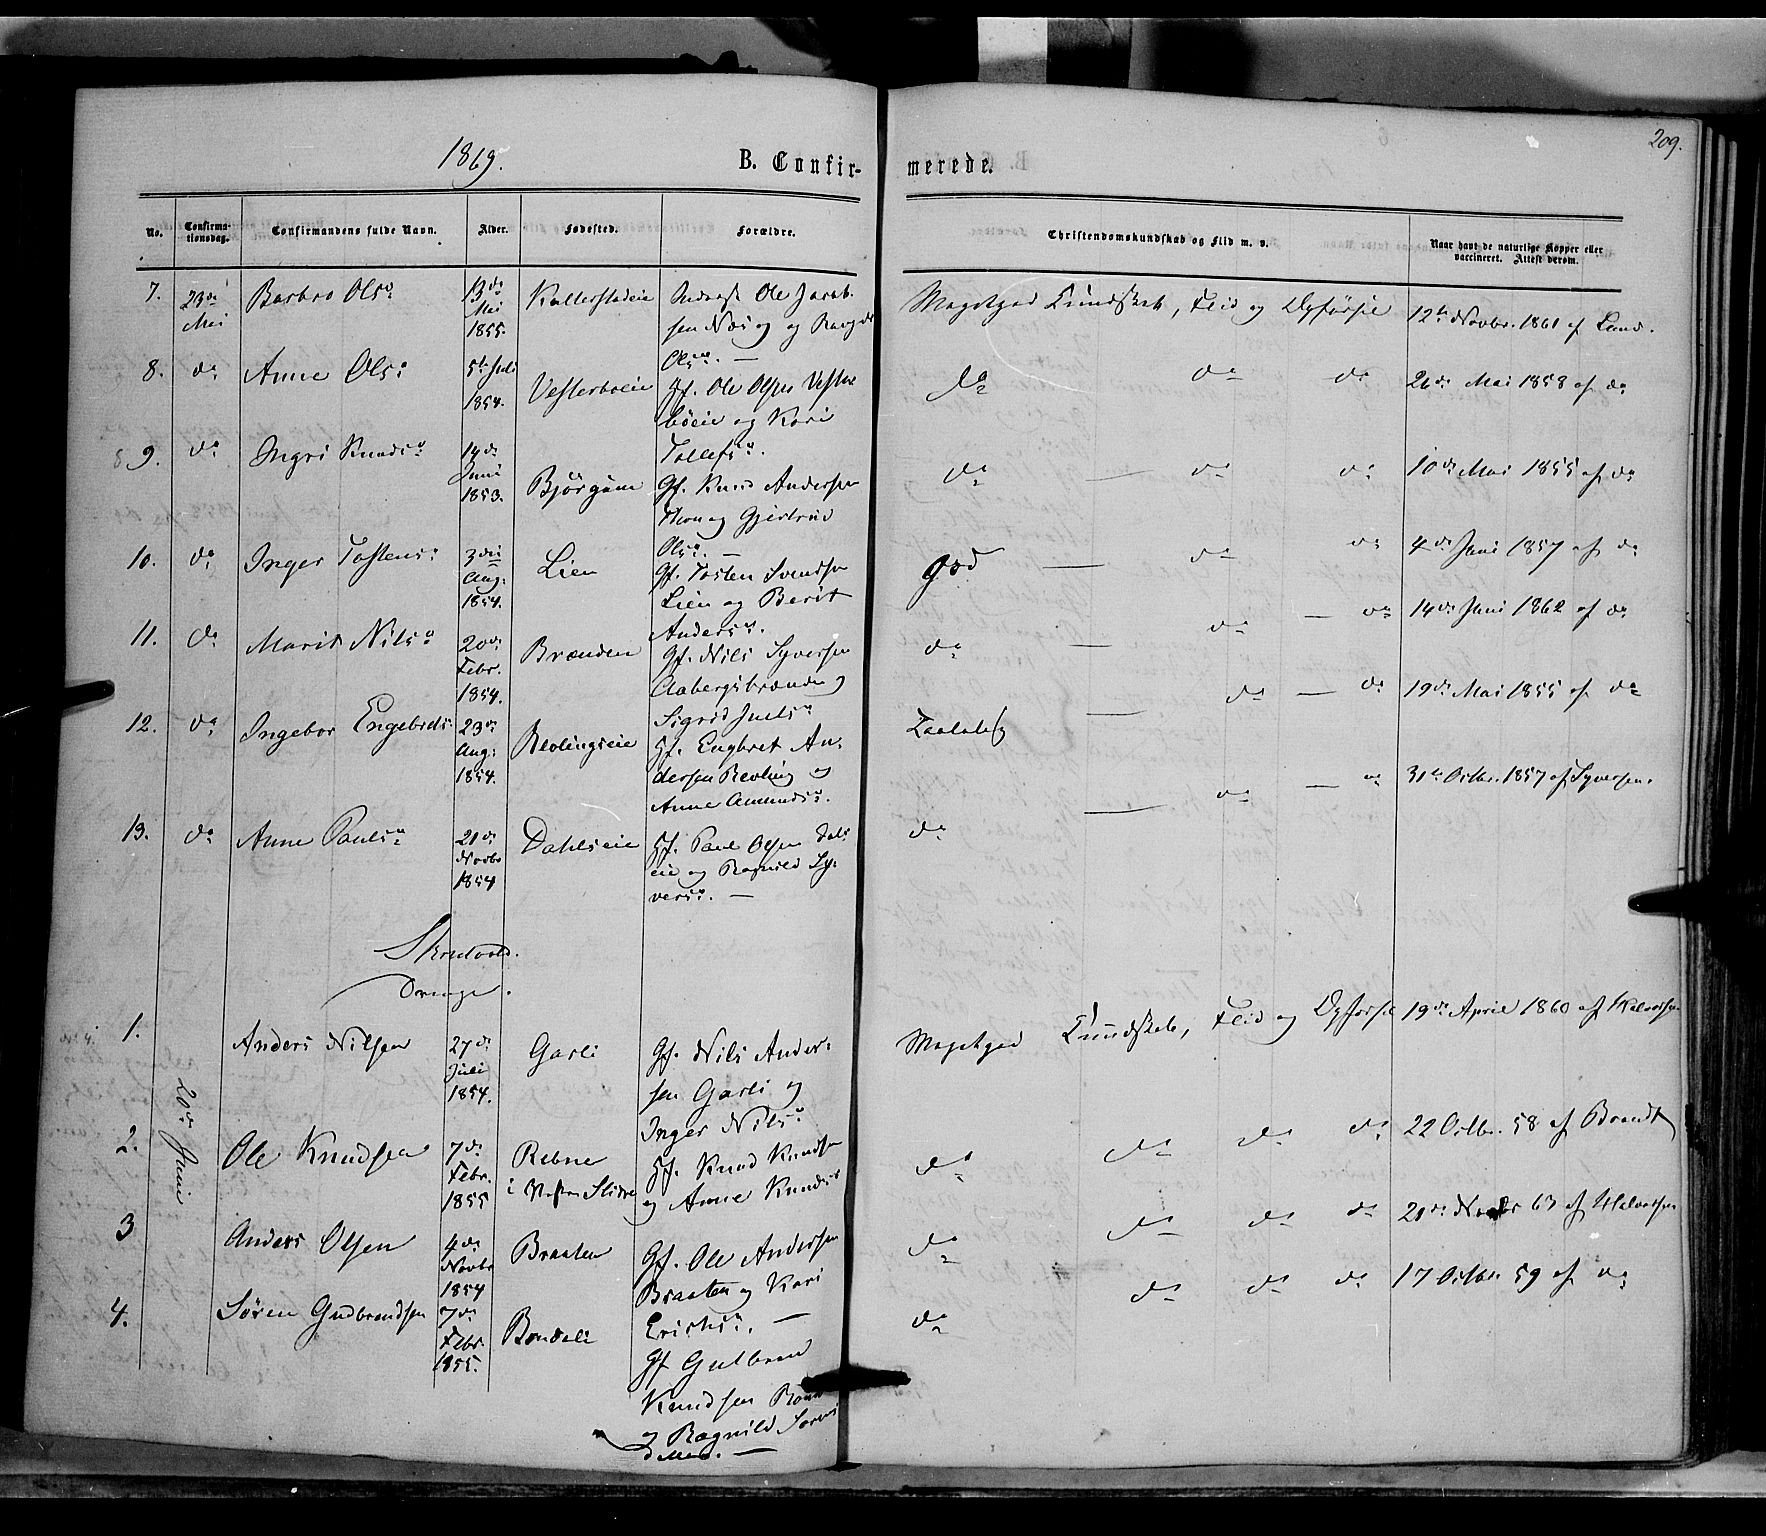 209.
1869.
B. Confirmerede.
No.
Confirmationsdag.
Confirmandens fulde Navn.
Alder.
Fødested.
Forældre.
Christendomskundskab og Flid m. v.
Naar havt de naturlige Kopper eller vaccineret. Attest derom.
7. 23de Mai Barbro Olsd. 13de Mai 1855. Ole Jacobsen og Olsd. — Megetgod Kundskab, Flid og Opførsel 12te Novbr. 1861 af Lund.
8. do Anne Olsd. 5te Juli 1854. Vesterbøeie Gf. Ole Olsen Vesterbøeie og Kari Tollefsd. do do do 26de Mai 1858 af do
9. do Ingri Knudsd. 14de Juni 1853. Bjørgum Gf. Knud Andersen og Gjertrud Olsd. — do — do do 10de Mai 1855 af do
10. do Inger Tostensd. 3die Aug: 1854. Lien Gf. Tosten Svendsen Lien og Berit Andersd. god — do do 4de Juni 1857 af do
11. do Marit Nilsd. 20de Febr. 1854. Brænden Gf. Nils Syversen Aabergsbrænden og Sigrid Juelsd. do — do — do 14de Juni 1862 af do
12. do Ingebor Engebretsd. 23de Aug: 1854. Revlingseie Gf. Engbret Andersen Revling og Anne Amundsd. Taalelig — do — do 19de Mai 1855 af do
13. do Anne Paulsd. 21de Novbr 1854 Dahlseie Gf. Paul Olsen Dalseie og Ragnild Syversd. — do — do — do 31te Octbr. 1857 af Syversen.
Skrutvold.
Drenge.
20de Junii
1. Anders Nilsen 27de Juli 1854. Garli Gf. Nils Andersen Garli og Inger Nilsd. Megetgod Kundskab, Flid og Opførsel 19de April 1860 af Halvorsen
2. Ole Knudsen 7de Febr. 1855 Rebne i Vestre Slidre Gf. Knud Knudsen og Anne Knudsd. do do do do 22 Octbr. 58 af Brandt
3 Anders Olsen 4de Novbr 1854 Braaten Gf. Ole Andersen Braaten og Kari Eriksd. — do do do do 21de Novbr 63 af Halvorsen
4. Sören Gudbrandsen 7de Febr. 1855. Gf Gulbran Knudsen og Ragnild do do do do 17 Octbr. 59 af do